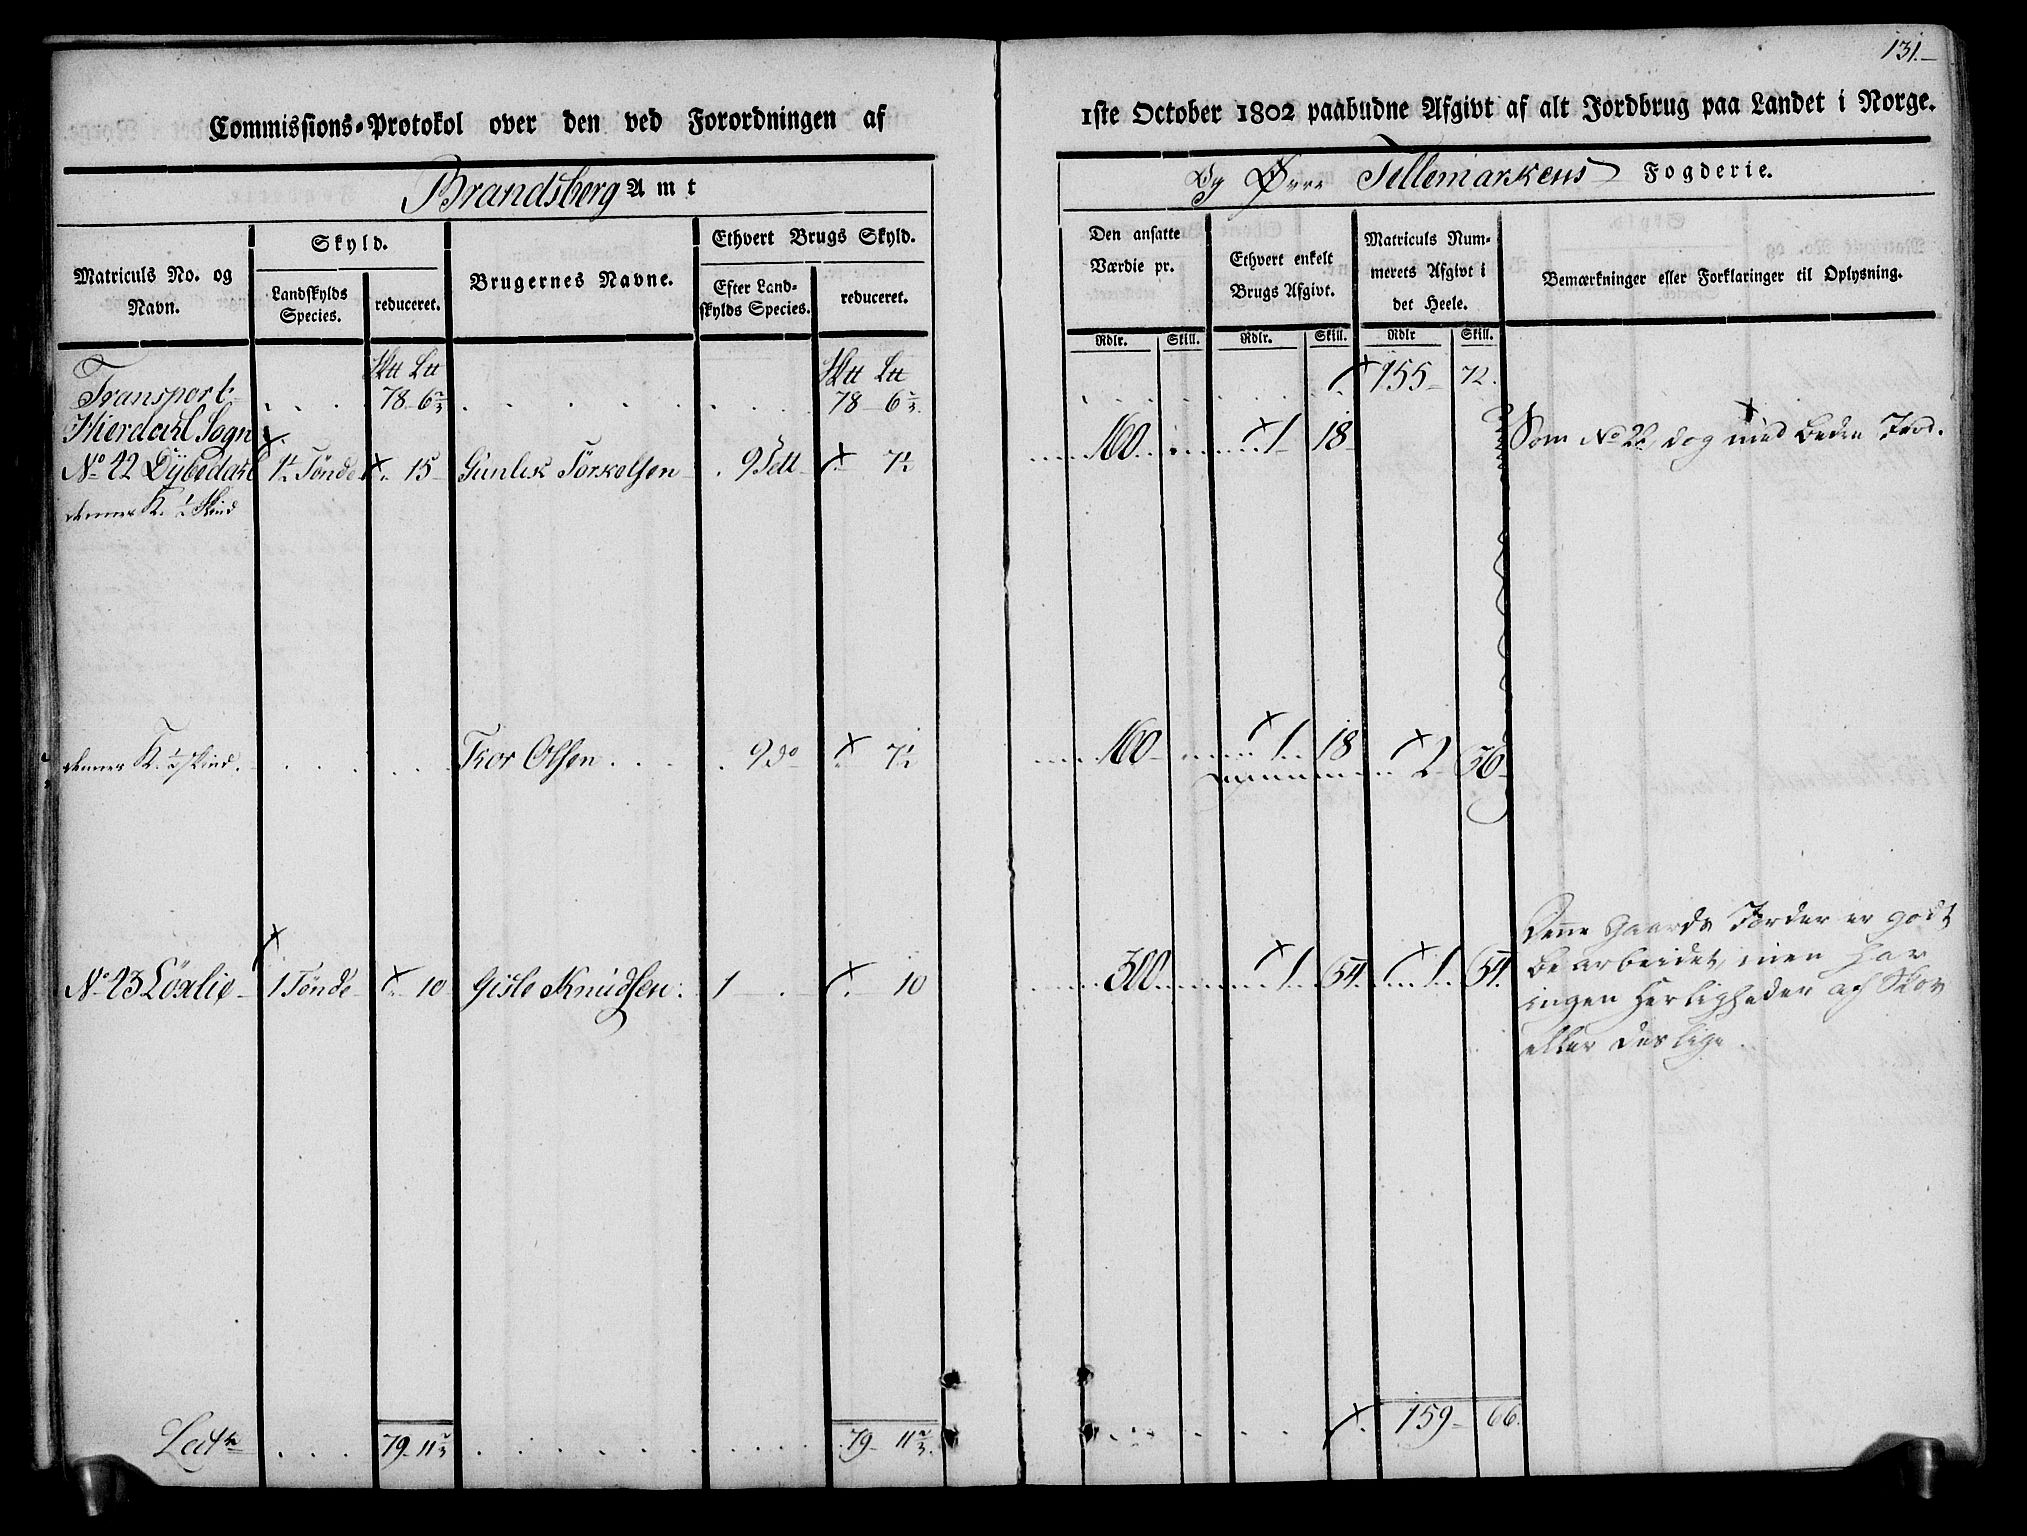 131.
Commissions-Protokol over den ved Forordningen af
1ste October 1802 paabudne Afgivt af alt Jordbrug paa Landet i Norge.
Brandsberg Amt
Øvre Tellemarkens Fogderie.
Matriculs No. og Navn.
Skyld.
Landskylds Species.
reduceret.
Brugernes Navne.
Ethvert Brugs Skyld.
Efter Landskylds Species.
reduceret.
Den ansatte Værdie pr.
Ethvert enkelt Brugs Afgivt.
Matriculs Nummerets Afgivt i det Heele.
Bemærkninger eller Forklaringer til Oplysning.
Rdlr. Skill. Rdlr. Skill. Rdlr Skill.
Transport 78 6⅔ 78 6⅔ 155 72.
Hierdahl Sogn
No 42 Dÿbedahl 1½ Tønde 15 Gunlek Torkelsen 9 Sett 7½ 160 1 18 Som No 22, dog med beden Jord.
½ Skind
½ Skind. Thor Olsen 9 do 7½ 160 1 18 2 36
No 43 Løxlie 1 Tønde 10 Gisle Knudsen 1 10 300 1 54 1 54.
Denne Gaards Jorder er godt
bearbeidet, men har
ingen Herligheder af Skov
eller deslige.
Lat 79 11⅔ 79 11⅔ 159 66.